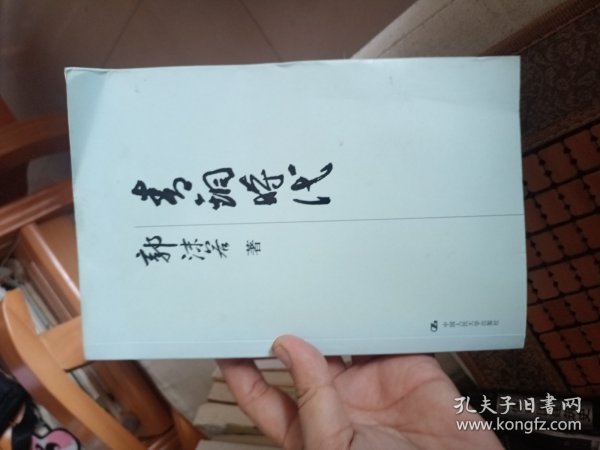 青铜時代
郭沫若 著
中国人民大学出版社
孔夫子旧書网
www.kongfz.com